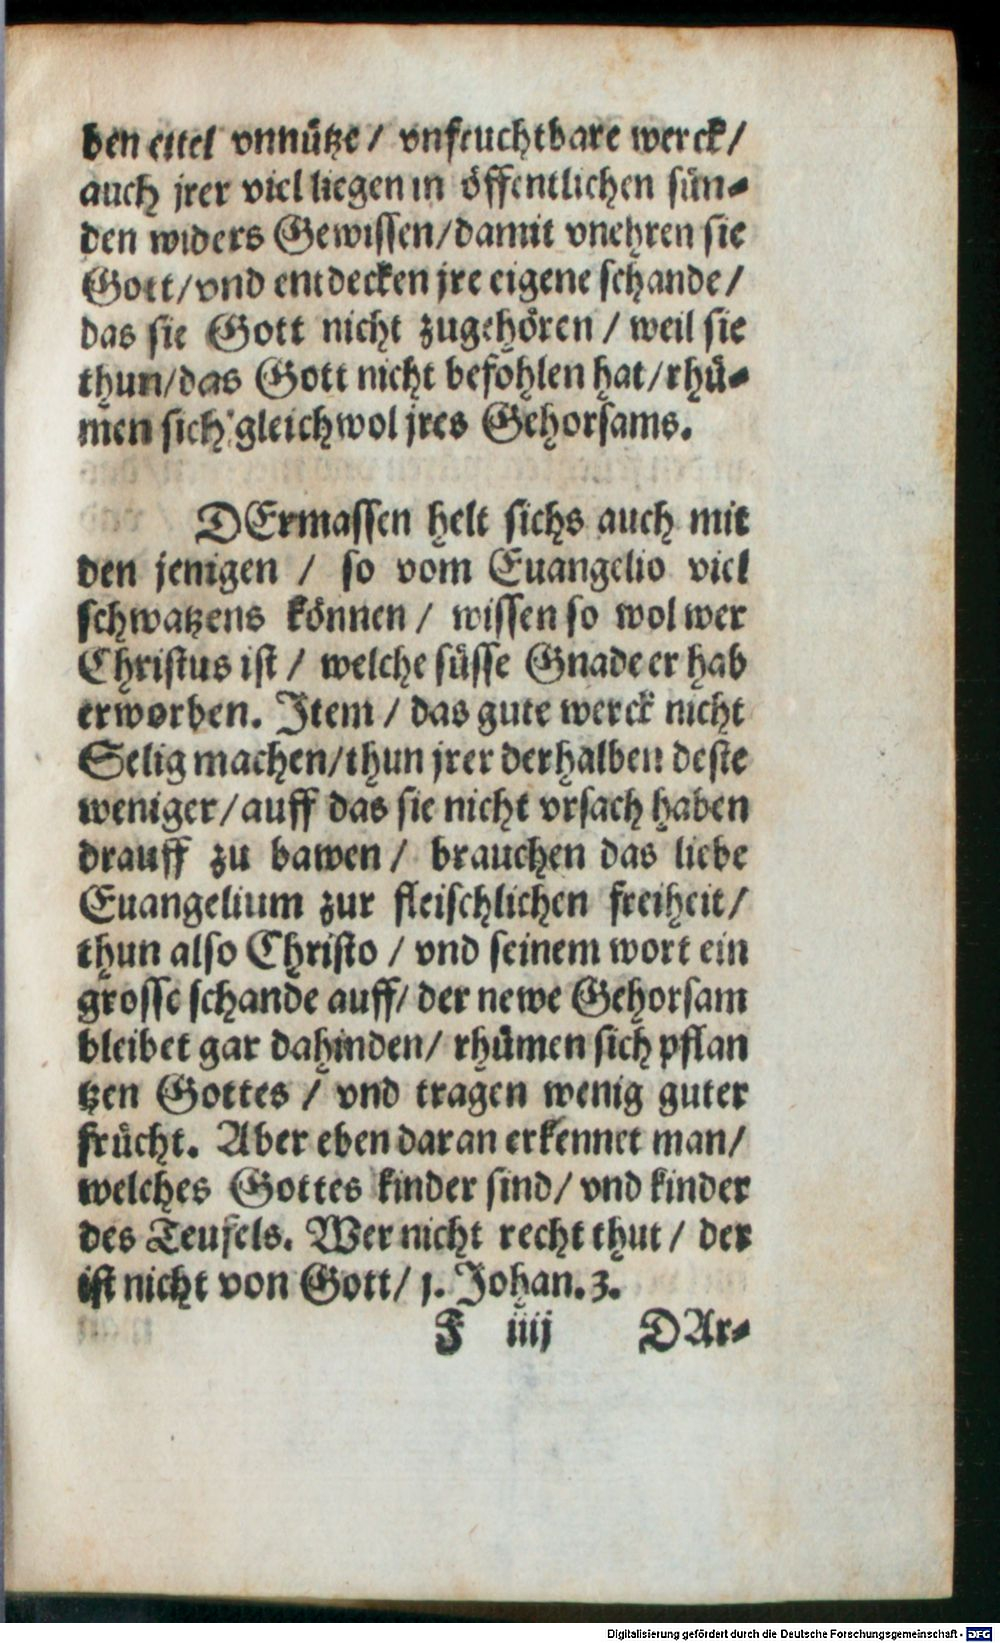 ben eitel vnnütze / vnfruchtbare werck /
auch jrer viel liegen in öffentlichen sün-
den widers Gewissen / damit vnehren sie
Gott / vnd entdecken jre eigene schande /
das sie Gott nicht zugehören / weil sie
thun / das Gott nicht befohlen hat / rhü-
men sich gleichwol jres Gehorsams.
DErmassen helt sichs auch mit
den jenigen / so vom Euangelio viel
schwatzens können / wissen so wol wer
Christus ist / welche süsse Gnade er hab
erworben. Item / das gute werck nicht
Selig machen / thun jrer derhalben deste
weniger / auff das sie nicht vrsach haben
drauff zu bawen / brauchen das liebe
Euangelium zur fleischlichen freiheit /
thun also Christo / vnd seinem wort ein
grosse schande auff / der newe Gehorsam
bleibet gar dahinden / rhümen sich pflan
tzen Gottes / vnd tragen wenig guter
frücht. Aber eben daran erkennet man /
welches Gottes kinder sind / vnd kinder
des Teufels. Wer nicht recht thut / der
ist nicht von Gott / 1. Johan. 3.
F iiij DAr-
Digitalisierung gefördert durch die Deutsche Forschungsgemeinschaft - DFG